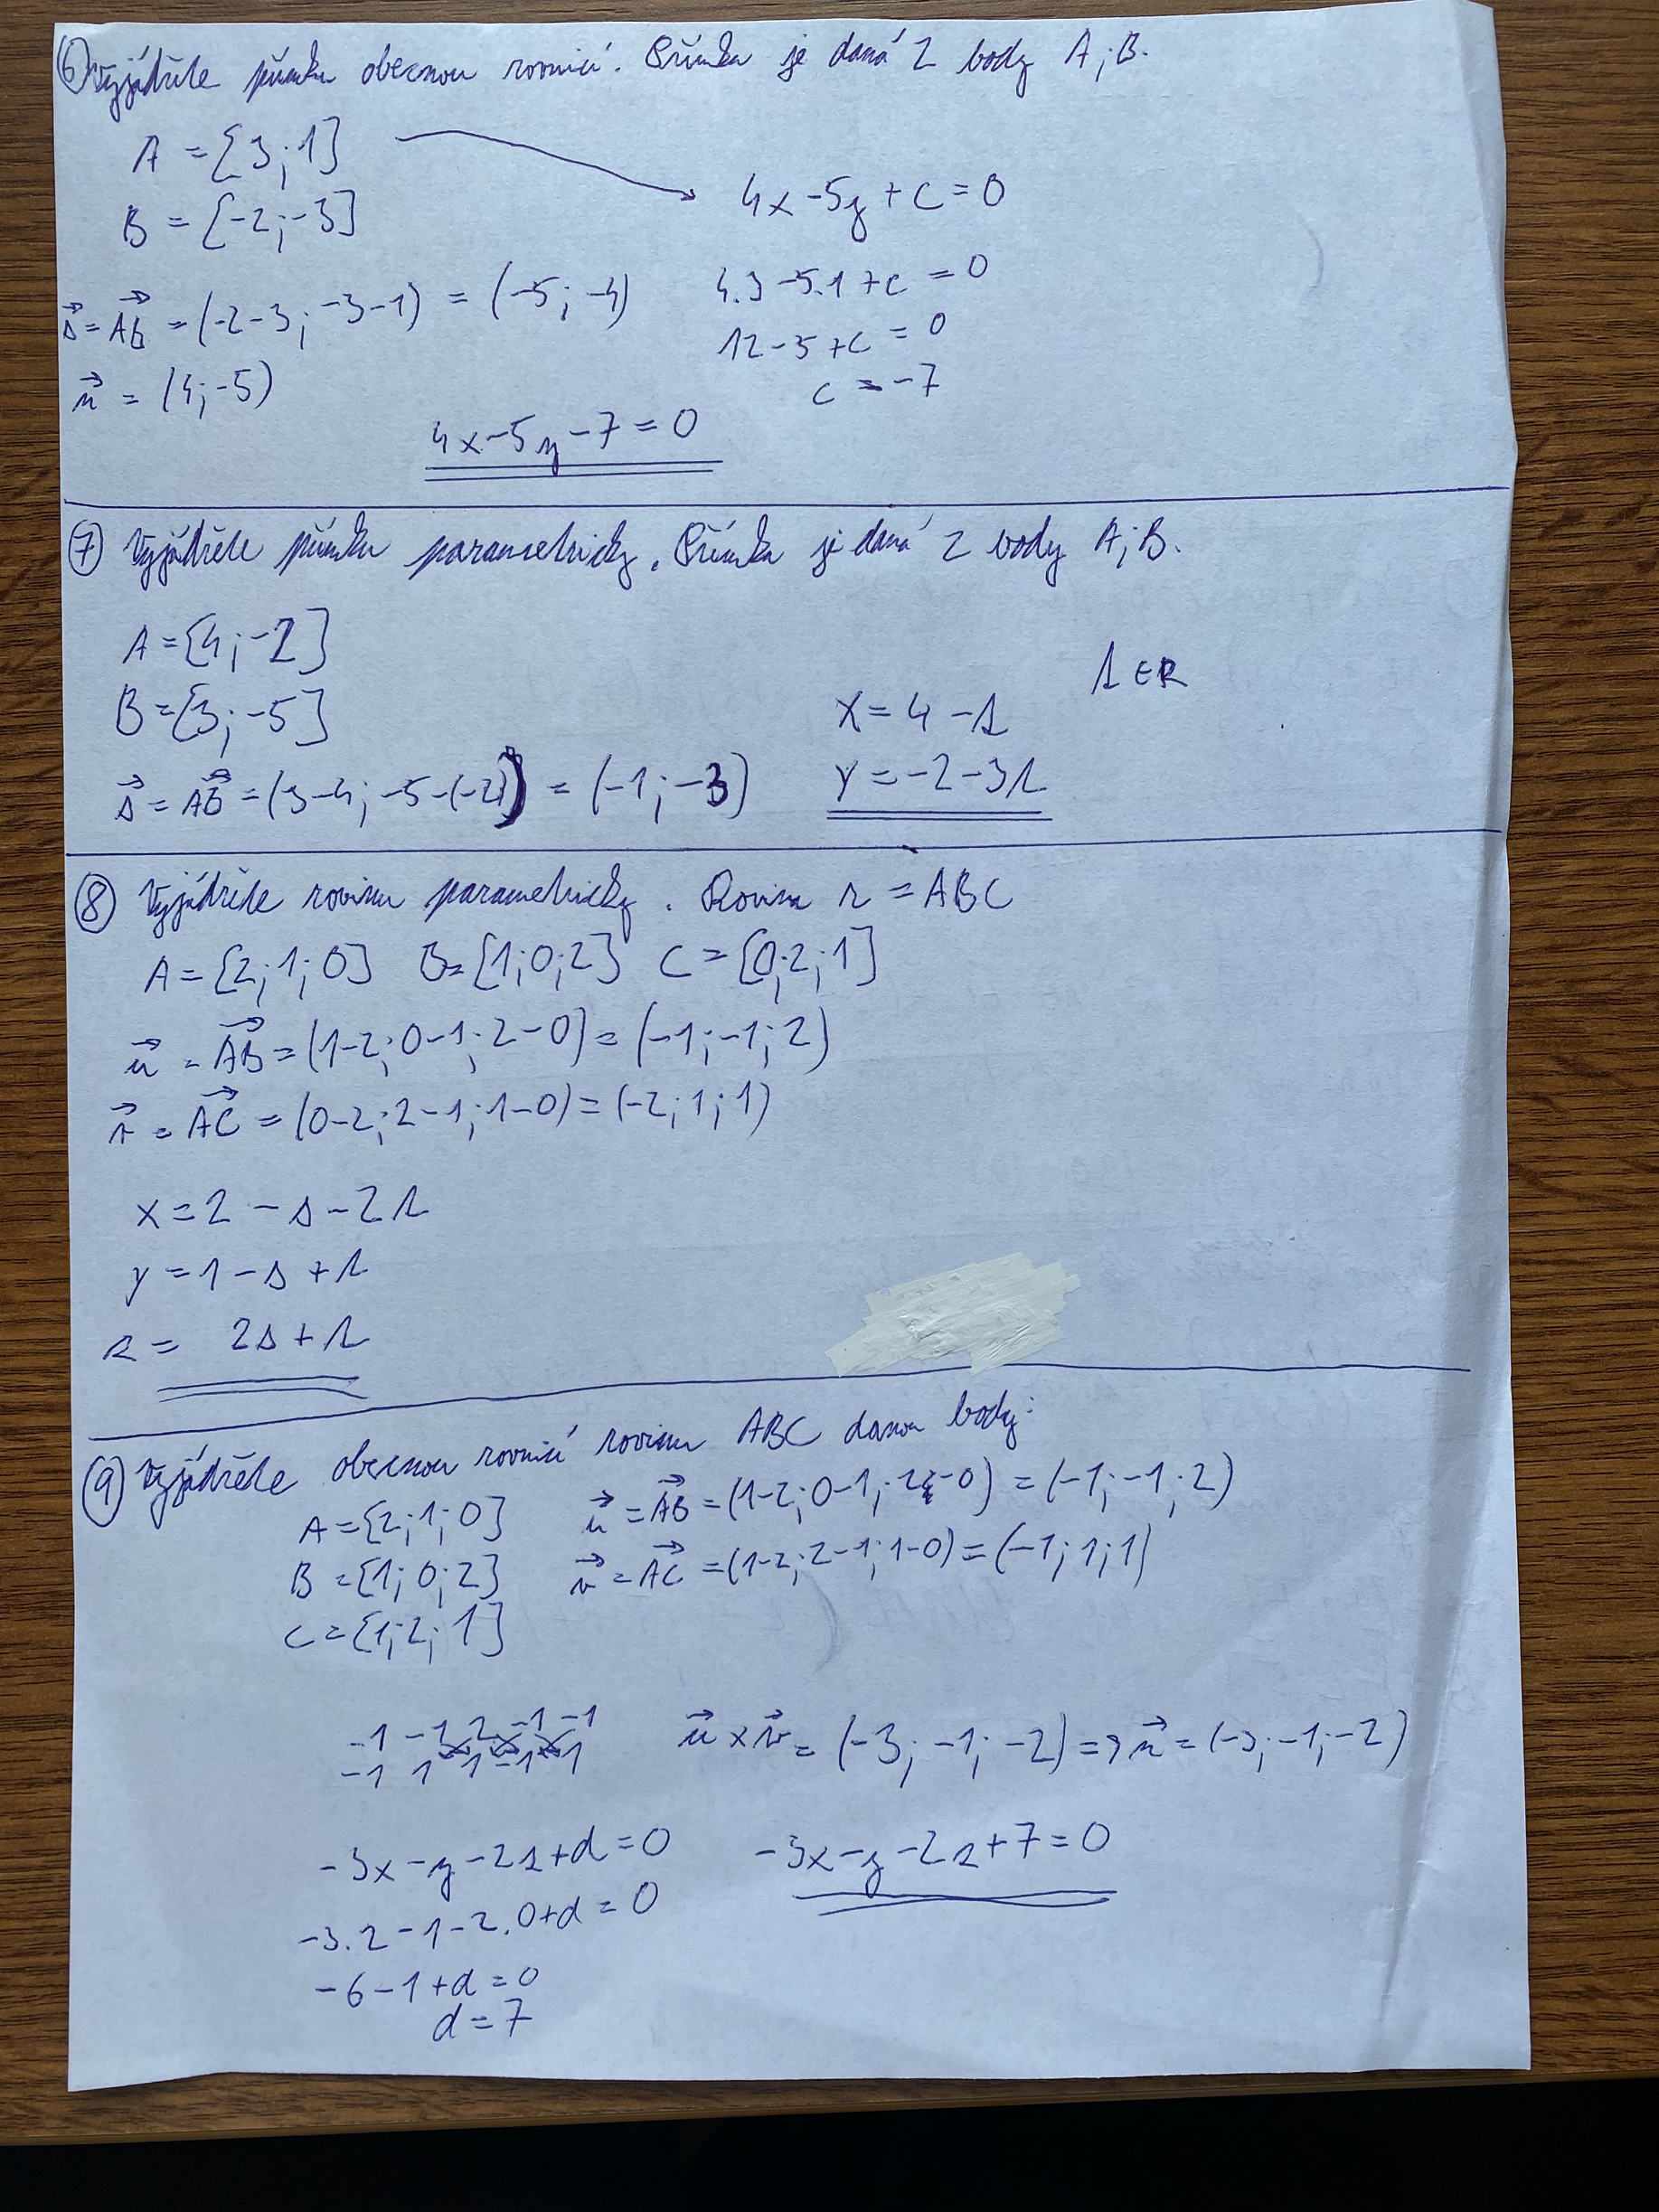 ⑥ Vyjádřete přímku obecnou rovnicí. Přímka je daná 2 body A; B.
A = [3; 1]
B = [-2; -3]
s⃗ = AB⃗ = (-2-3; -3-1) = (-5; -4)
n⃗ = (4; -5)
4x - 5y + c = 0
4.3 - 5.1 + c = 0
12 - 5 + c = 0
c = -7
4x - 5y - 7 = 0
⑦ Vyjádřete přímku parametricky. Přímka je daná 2 body A; B.
A = [4; -2]
B = [3; -5]
s⃗ = AB⃗ = (3-4; -5-(-2)) = (-1; -3)
x = 4 - t
t ∈ R
y = -2 - 3t
⑧ Vyjádřete rovinu parametricky. Rovina r = ABC
A = [2; 1; 0] B = [1; 0; 2] C = [0; 2; 1]
u⃗ = AB⃗ = (1-2; 0-1; 2-0) = (-1; -1; 2)
v⃗ = AC⃗ = (0-2; 2-1; 1-0) = (-2; 1; 1)
x = 2 - s - 2t
y = 1 - s + t
z = 2s + t
⑨ Vyjádřete obecnou rovnicí rovinu ABC danou body:
A = [2; 1; 0]
B = [1; 0; 2]
C = [1; 2; 1]
u⃗ = AB⃗ = (1-2; 0-1; 2-0) = (-1; -1; 2)
v⃗ = AC⃗ = (1-2; 2-1; 1-0) = (-1; 1; 1)
-1 -1 2 -1 -1
-1 1 1 -1 1
u⃗ x v⃗ = (-3; -1; -2) => n⃗ = (-3; -1; -2)
-3x - y - 2z + d = 0
-3.2 - 1 - 2.0 + d = 0
-6 - 1 + d = 0
d = 7
-3x - y - 2z + 7 = 0